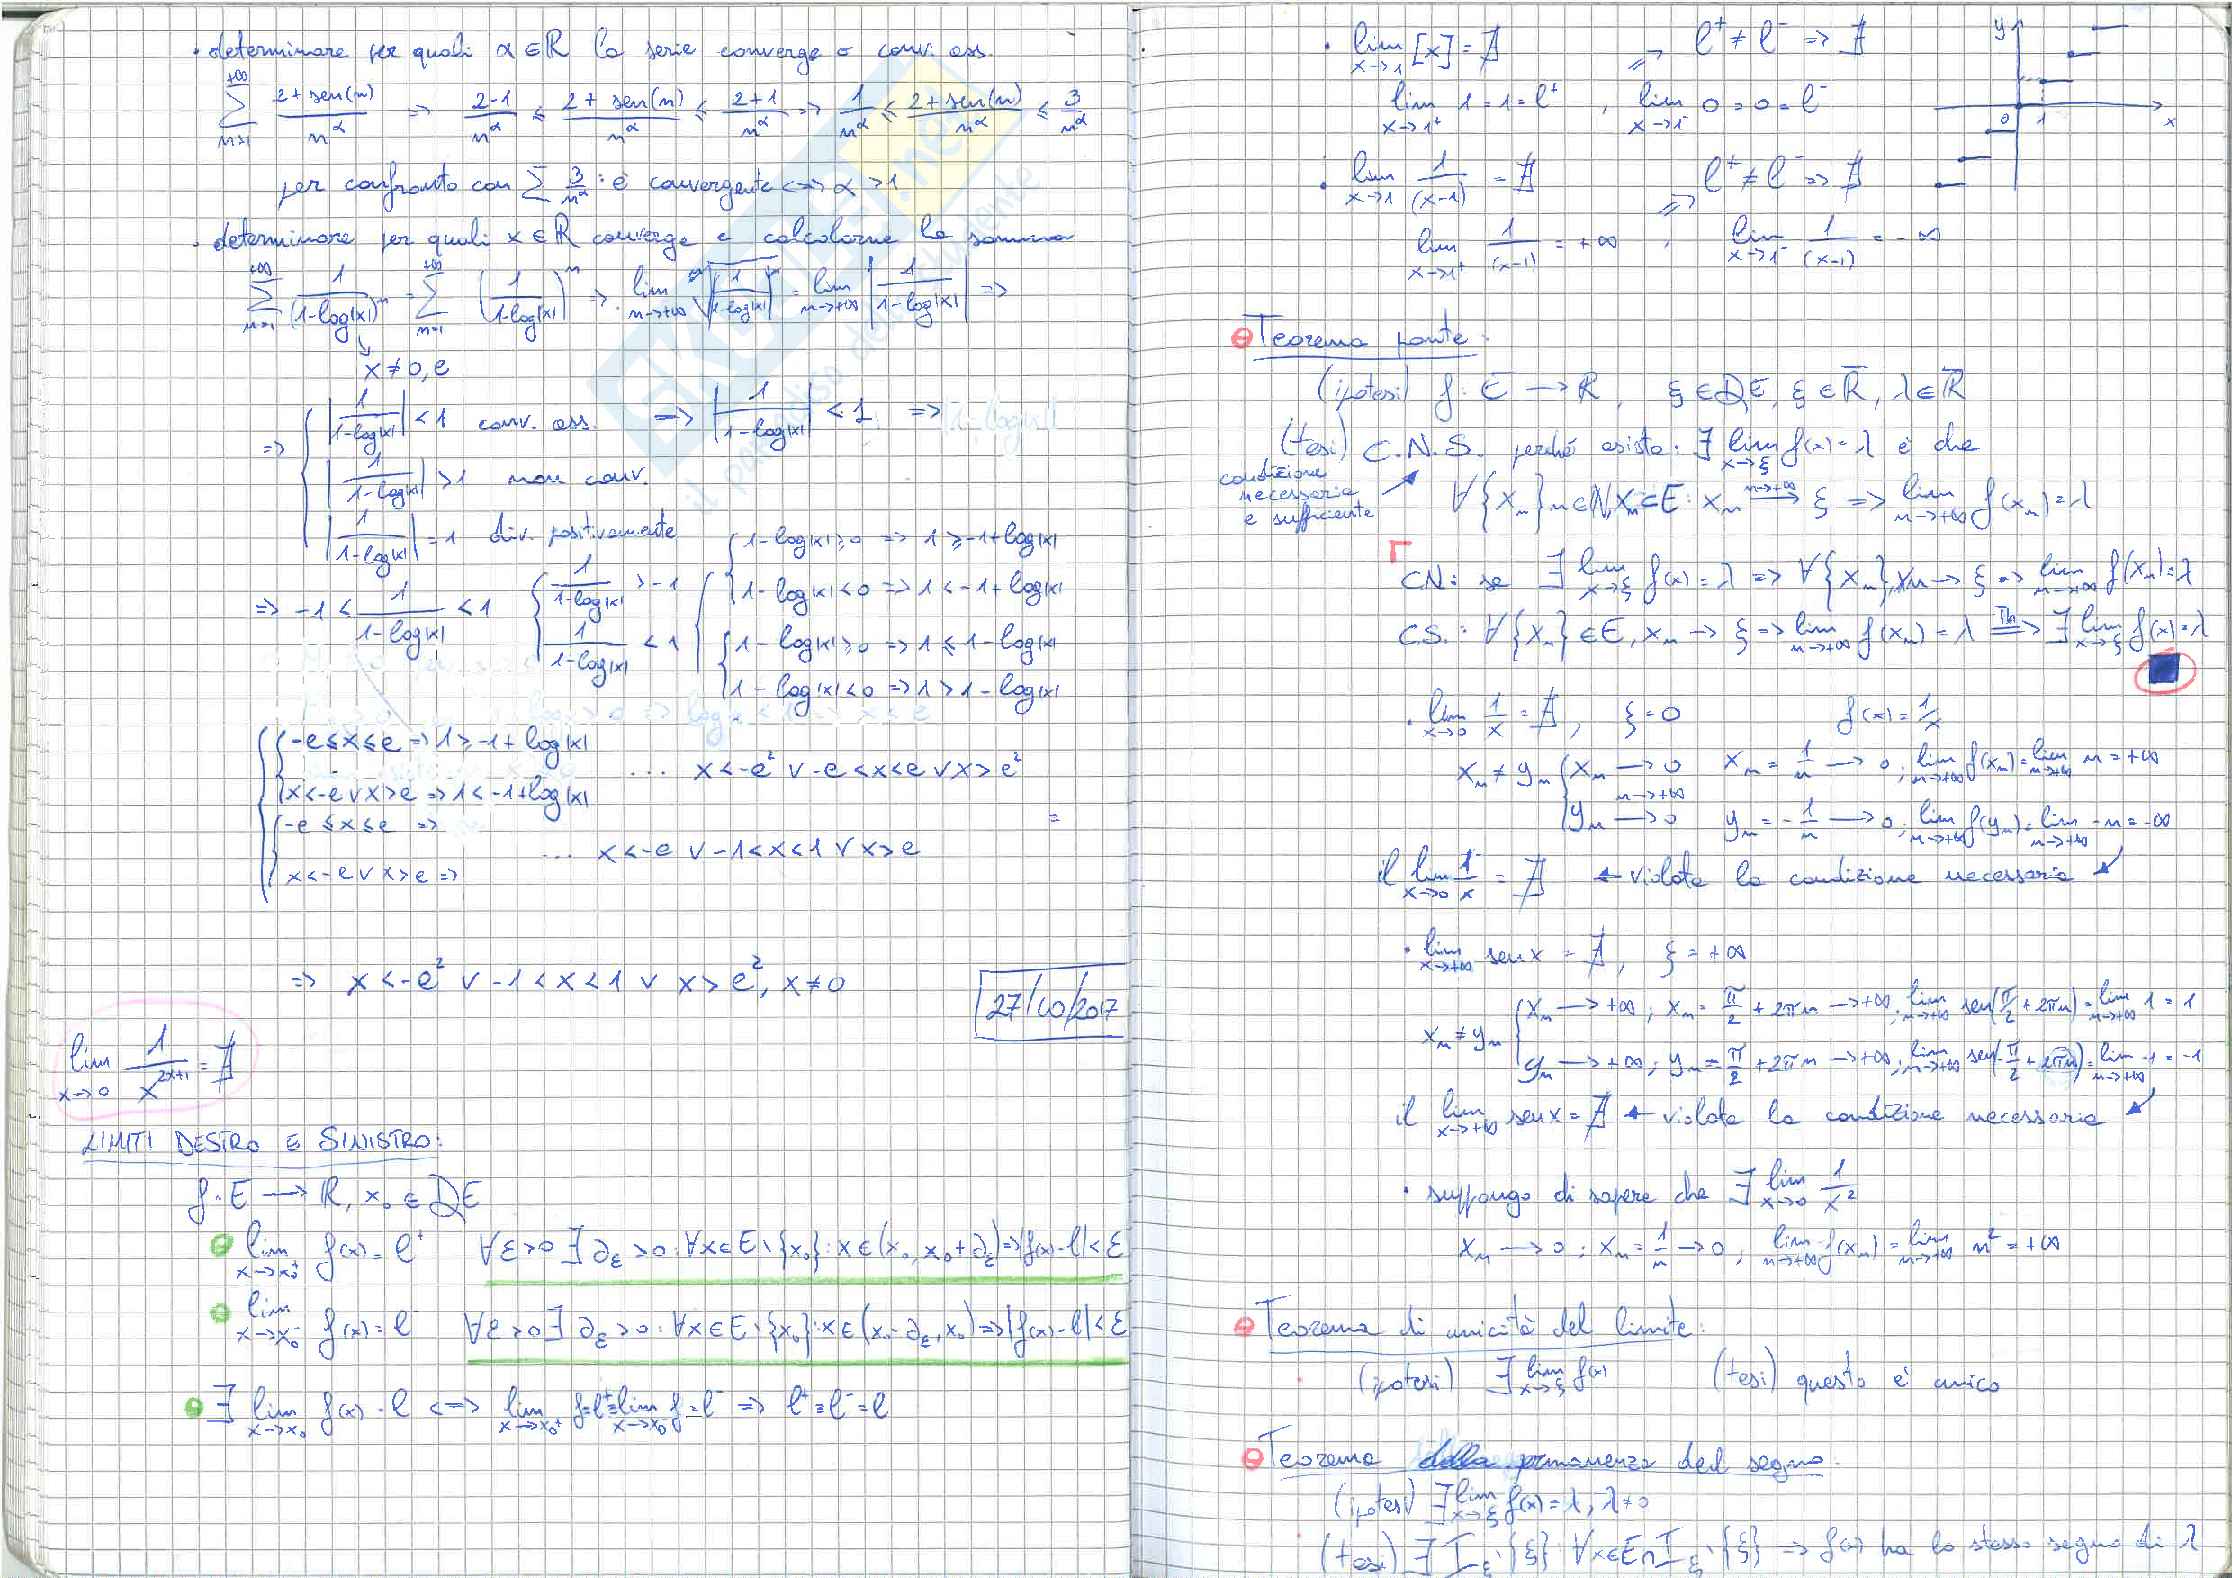 • determinare per quali α ∈ ℝ la serie converge o conv. ass.
∑_{n=1}^{+∞} (2+sen(n))/n^α => (2-1)/n^α ≤ (2+sen(n))/n^α ≤ (2+1)/n^α => 1/n^α ≤ (2+sen(n))/n^α ≤ 3/n^α
per confronto con ∑ 3/n^α : è convergente <=> α > 1
• determinare per quali x ∈ ℝ converge e calcolarne la somma
∑_{n=1}^{+∞} 1/(1-log|x|)^n = ∑_{n=1}^{+∞} (1/(1-log|x|))^n => lim_{n→+∞} ⁿ√|1/(1-log|x|)|^n = lim_{n→+∞} |1/(1-log|x|)| =>
x ≠ 0, e
=> { |1/(1-log|x|)| < 1 conv. ass. => |1/(1-log|x|)| < 1 =>
|1/(1-log|x|)| > 1 non conv.
|1/(1-log|x|)| = 1 div. positivamente
=> -1 < 1/(1-log|x|) < 1 { 1/(1-log|x|) > -1
1/(1-log|x|) < 1
{ 1-log|x| ≥ 0 => 1 ≥ -1+log|x|
1-log|x| < 0 => 1 < -1+log|x|
{ 1-log|x| ≥ 0 => 1 ≤ 1-log|x|
1-log|x| < 0 => 1 > 1-log|x|
{ -e ≤ x ≤ e => 1 ≥ -1+log|x|
... x < -e² ∨ -e < x < e ∨ x > e²
x < -e ∨ x > e => 1 < -1+log|x|
{ -e ≤ x ≤ e =>
... x < -e ∨ -1 < x < 1 ∨ x > e
x < -e ∨ x > e =>
=> x < -e² ∨ -1 < x < 1 ∨ x > e², x ≠ 0
27/10/2017
lim_{x→0} 1/x^{2x+1} = ∄
LIMITI DESTRO E SINISTRO:
f: E → ℝ, x₀ ∈ DE
lim_{x→x₀⁺} f(x) = l⁺ ∀ε>0 ∃ ∂_ε>0 : ∀x∈E \ {x₀} : x∈(x₀, x₀+∂_ε) => |f(x)-l| < ε
lim_{x→x₀⁻} f(x) = l⁻ ∀ε>0 ∃ ∂_ε>0 : ∀x∈E \ {x₀} : x∈(x₀-∂_ε, x₀) => |f(x)-l| < ε
∃ lim_{x→x₀} f(x) = l <=> lim_{x→x₀⁺} f = l⁺ = lim_{x→x₀⁻} f = l⁻ => l⁺ = l⁻ = l
• lim_{x→1} [x] = ∄ => l⁺ ≠ l⁻ => ∄
lim_{x→1⁺} 1 = 1 = l⁺ , lim_{x→1⁻} 0 = 0 = l⁻
y
0 1 x
• lim_{x→1} 1/(x-1) = ∄ => l⁺ ≠ l⁻ => ∄
lim_{x→1⁺} 1/(x-1) = +∞ , lim_{x→1⁻} 1/(x-1) = -∞
Teorema ponte:
(ipotesi) f: E → ℝ, ξ ∈ DE, ξ ∈ ℝ̅, λ ∈ ℝ̅
(tesi) C.N.S. perché esista: ∃ lim_{x→ξ} f(x) = λ è che
condizione necessaria e sufficiente
∀{xₙ} n∈ℕ, xₙ∈E : xₙ →_{n→+∞} ξ => lim_{n→+∞} f(xₙ) = λ
CN: se ∃ lim_{x→ξ} f(x) = λ => ∀{xₙ}, xₙ → ξ => lim_{n→+∞} f(xₙ) = λ
C.S.: ∀{xₙ} ∈ E, xₙ → ξ => lim_{n→+∞} f(xₙ) = λ =Th=> ∃ lim_{x→ξ} f(x) = λ
• lim_{x→0} 1/x = ∄, ξ = 0 f(x) = 1/x
xₙ ≠ yₙ { xₙ →_{n→+∞} 0 xₙ = 1/n → 0; lim_{n→+∞} f(xₙ) = lim_{n→+∞} n = +∞
yₙ → 0 yₙ = -1/n → 0; lim_{n→+∞} f(yₙ) = lim_{n→+∞} -n = -∞
il lim_{x→0} 1/x = ∄ ← violata la condizione necessaria
• lim_{x→+∞} sen x = ∄, ξ = +∞
xₙ ≠ yₙ { xₙ → +∞; xₙ = π/2 + 2πn → +∞; lim_{n→+∞} sen(π/2 + 2πn) = lim_{n→+∞} 1 = 1
yₙ → +∞; yₙ = π/2 + 2πn → +∞; lim_{n→+∞} sen(-π/2 + 2πn) = lim_{n→+∞} -1 = -1
il lim_{x→+∞} sen x = ∄ ← violata la condizione necessaria
• suppongo di sapere che ∃ lim_{x→0} 1/x²
xₙ → 0 : xₙ = 1/n → 0, lim_{n→+∞} f(xₙ) = lim_{n→+∞} n² = +∞
Teorema di unicità del limite:
(ipotesi) ∃ lim_{x→ξ} f(x) (tesi) questo è unico
Teorema della permanenza del segno:
(ipotesi) ∃ lim_{x→ξ} f(x) = λ, λ ≠ 0
(tesi) ∃ I_ξ \ {ξ} ∀x∈E∩I_ξ \ {ξ} => f(x) ha lo stesso segno di λ